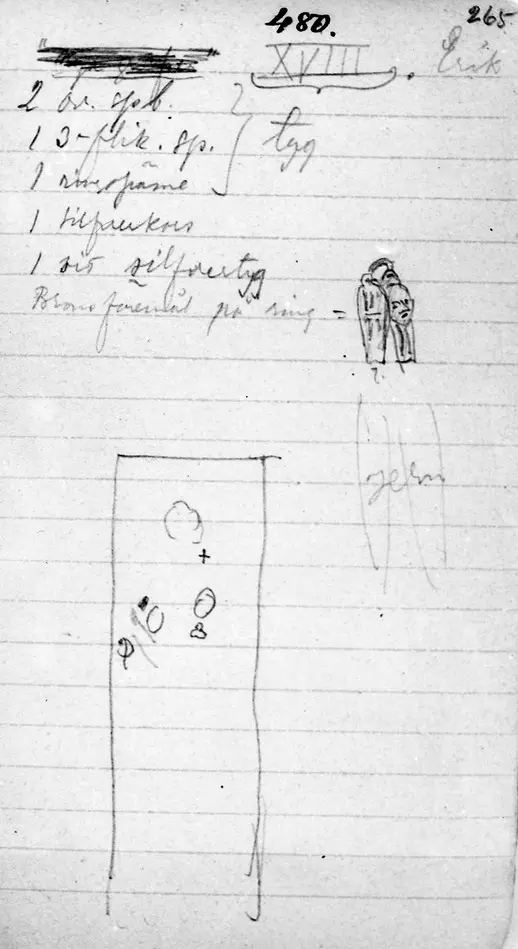 480. 265
XVIII. Erik
2 ov. spb.
1 3-flik. sp. } tyg
1 ringspänne
1 silfverkors
1 silfvertyg
Bronsföremål på ring =
?
jern